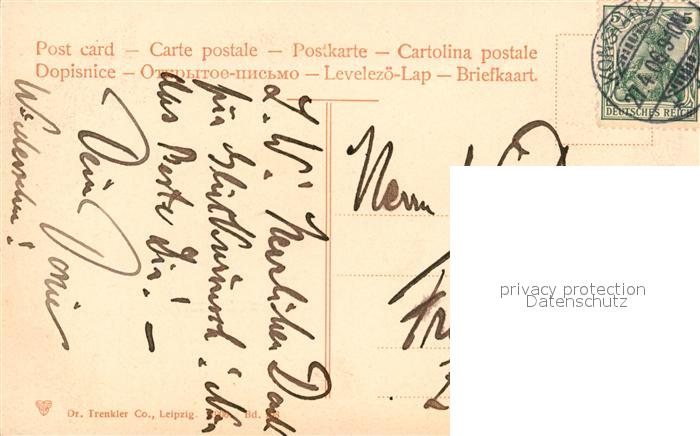 Post card – Carte postale – Postkarte – Cartolina postale
Dopisnice – Открытое-письмо – Levelező-Lap – Briefkaart.
DEUTSCHES REICH
L. W! Herzlichen Dank
für Glückwunsch! Nur
das Beste Dir! –
Dein
Wiedersehen!
Herrn
privacy protection
Datenschutz
Dr. Trenkler Co., Leipzig. Bd.